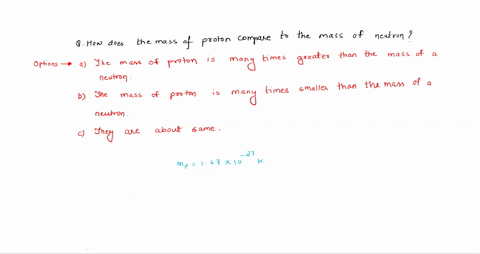 Q. How does the mass of proton compare to the mass of neutron?
Options → a) The mass of proton is many times greater than the mass of a
neutron.
b) The mass of proton is many times smaller than the mass of a
neutron.
c) They are about same.
mp = 1.67 × 10^-27 k